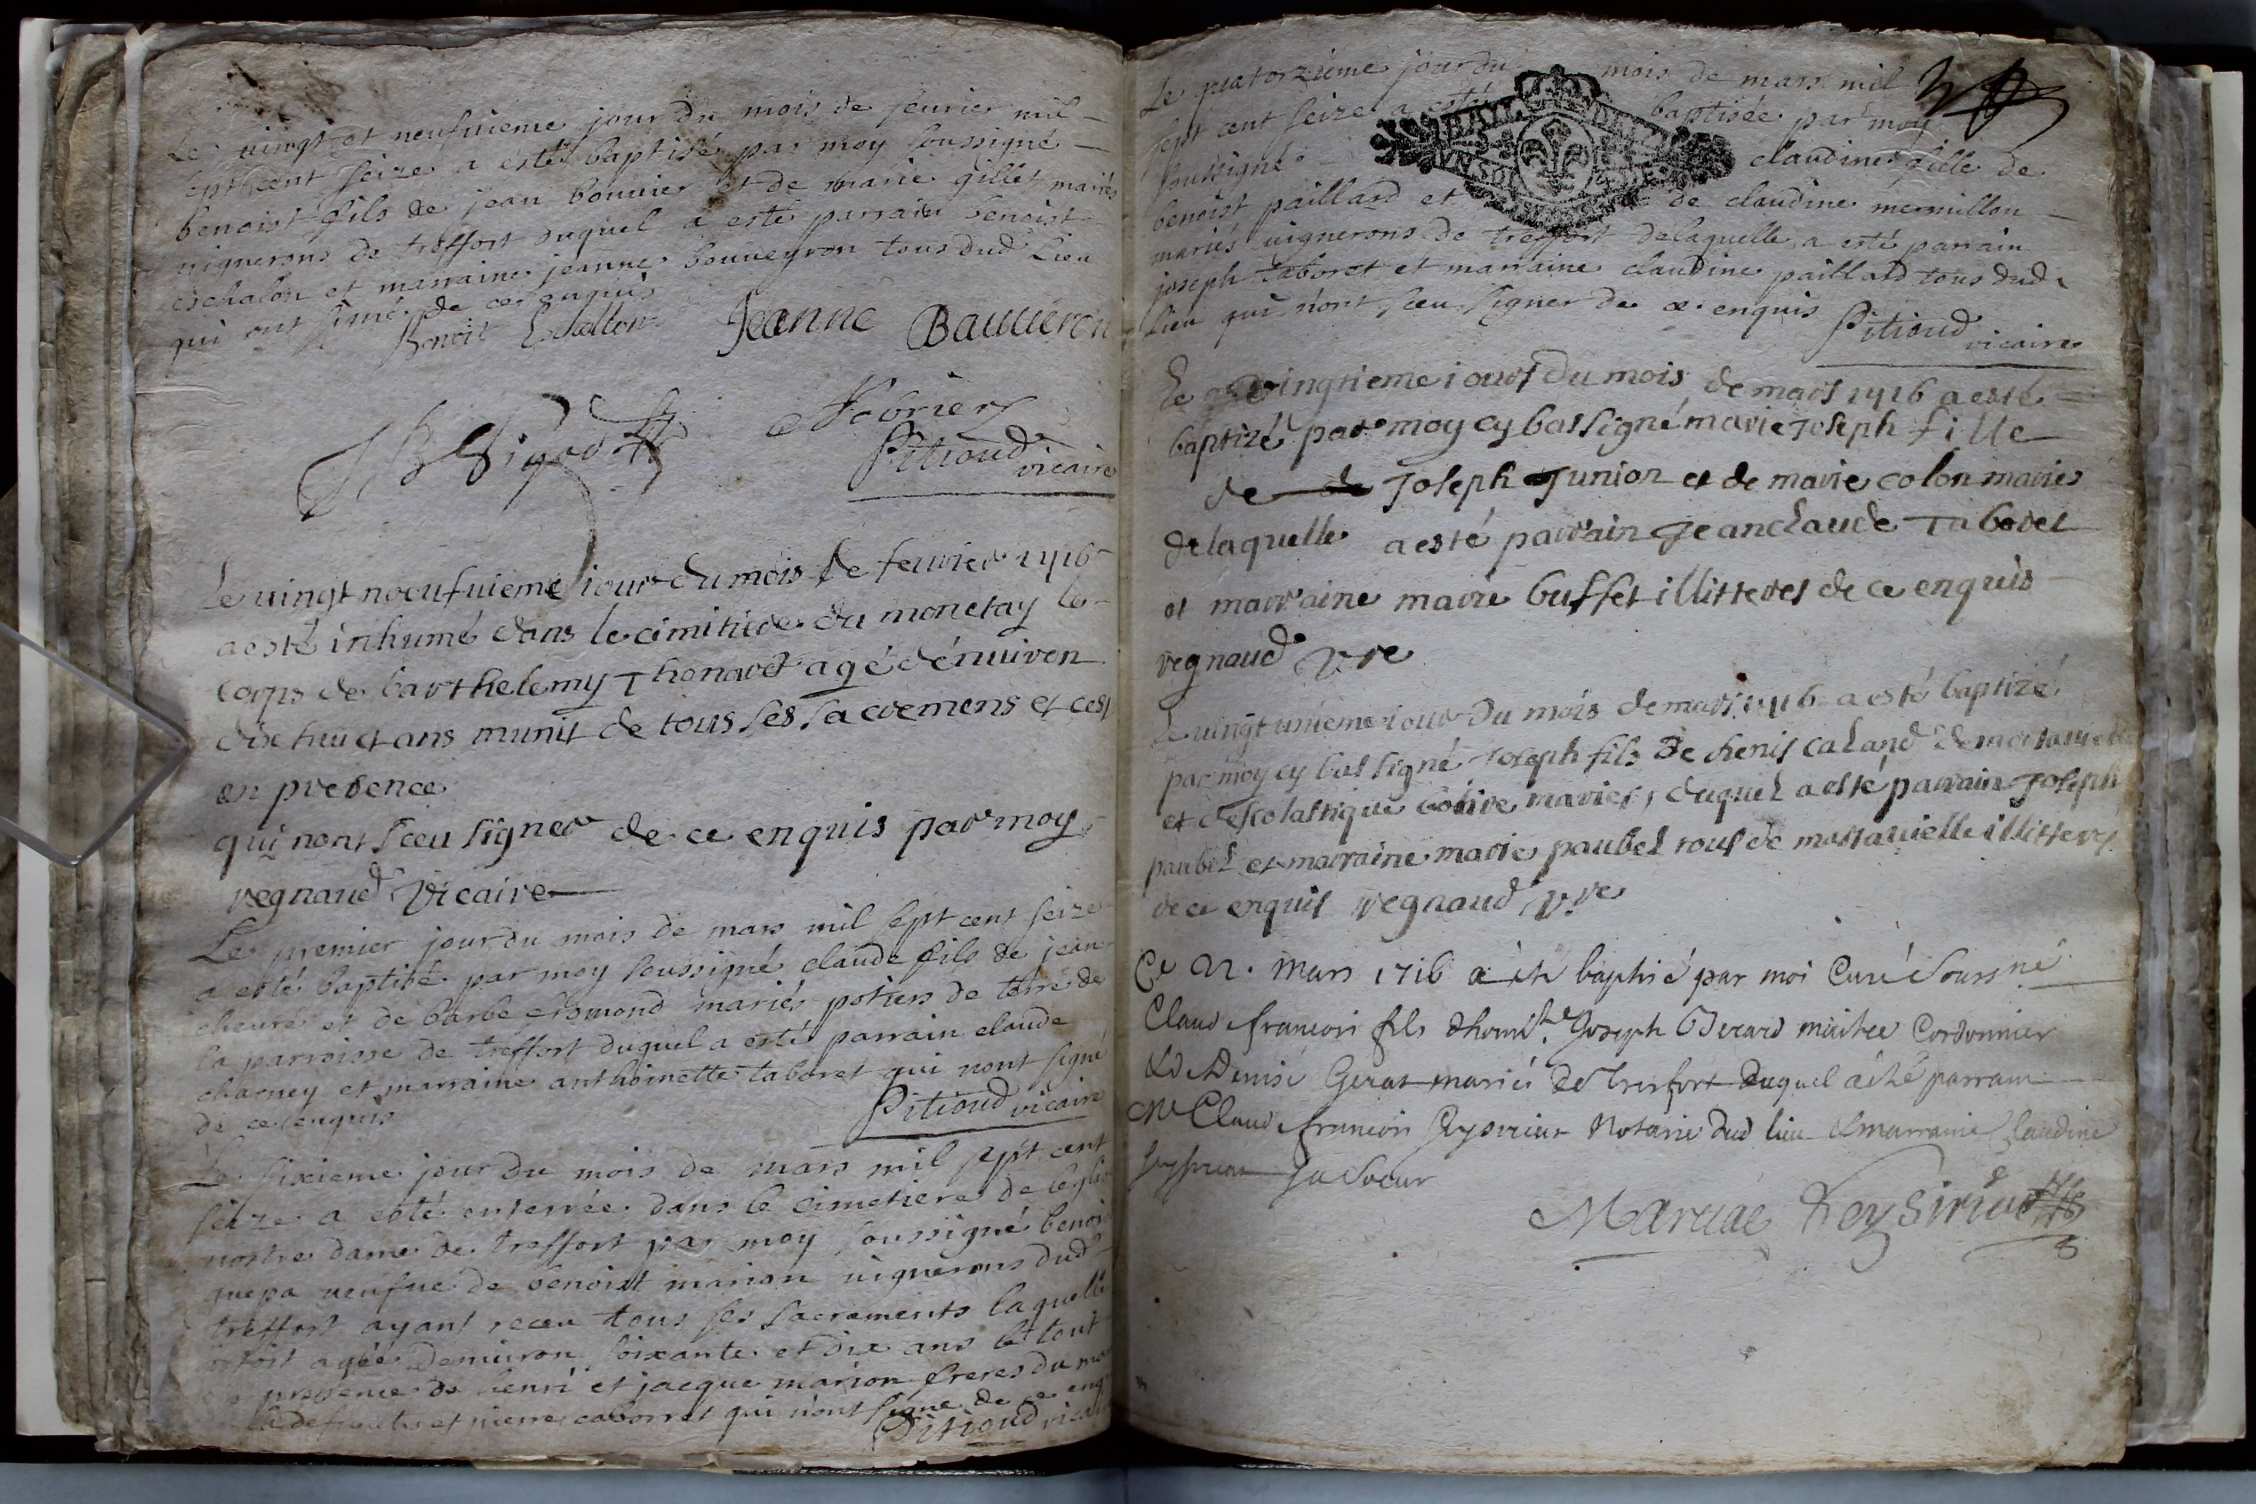 Le vingt et neufvieme jour du mois de fevrier mil
sept cent seize a esté baptisé par moy soussigné
benoist fils de jean bouvier et de marie gillet mariés
vignerons de treffort duquel a esté parrain benoist
eschalon et marraine jeanne bouveyron tous dud lieu
qui ont signé de ce enquis
Benoit Echalon Jeanne Bauvieron
fevrier
Pitioud
vicaire
Le vingt noeufvieme jour du mois de fevrier 1716
a esté inhumé dans le cimitiere du monetay le
corps de barthelemy Thenard agé dénviron
dix huict ans munit de tous ses sacremens et cest
en presence
qui nont sceu signer de ce enquis par moy
regnaud vicaire
Le premier jour du mois de mars mil sept cent seize
a esté baptisé par moy soussigné claude fils de jean
cheuré et de barbe esmond mariés potiers de terre de
la parroisse de treffort duquel a esté parrain claude
charney et marraine anthoinette taboret qui nont signé
de ce enquis
Pitioud vicaire
Le sixieme jour du mois de mars mil sept cent
seize a esté enterrée dans le cimetiere de leglise
nostre dame de treffort par moy soussigné benoi
guepa veufve de benoist marion vignerons dud
treffort ayant receu tous ses sacrements laquelle
estoit agée denviron soixante et dix ans le tout
en presence de henri et jacque marion freres du
la defuncte et pierre caborret qui n'ont signé de ce enquis
Pitioud vicaire
Le quatorzieme jour du mois de mars mil
sept cent seize a esté baptisée par moy
soussigné claudine fille de
benoist paillard et de claudine mermillon
mariés vignerons de treffort delaquelle a esté parrain
joseph taboret et marraine claudine paillard tous dud
lieu qui n'ont sceu signer de ce enquis
Pitioud vicaire
Le vingtieme jour du mois de mars 1716 a esté
baptizé par moy cy bas signé marie Joseph fille
de Joseph Junion et de marie colon mariés
delaquelle a esté parrain Jeanclaude Taboret
et marraine marie buffet illitteres de ce enquis
regnaud vre
Le vingt unieme jour du mois de mars 1716 a esté baptizé
par moy cy bas signé Joseph fils de denis caland de
et descolastique mariés, duquel a esté parrain Joseph
paubel et marraine marie paubel tous de massavielle illitteres
de ce enquis regnaud vre
Ce 22. Mars 1716 a été baptisé par moi Curé Soussné
Claud francois fils dhonnte Joseph Berard maitre Cordonnier
& de Denise Gerat mariés de Treffort duquel a été parrain
Me Claud francois Reysiriat Notaire dud lieu & marraine Claudine
Reysiriat sa Soeur
Marciac Reysiriat